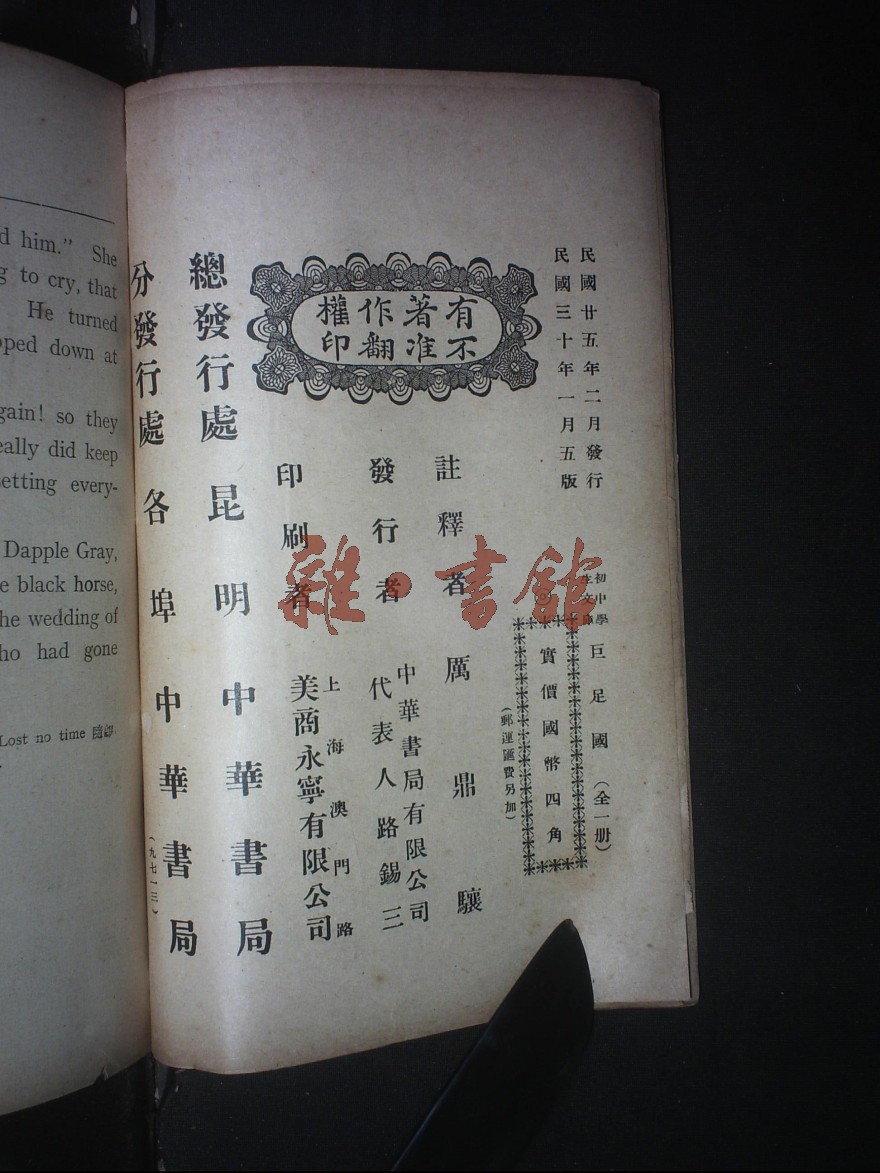 民國廿五年二月發行
民國三十年一月五版
初中學
生文庫
巨足國（全一册）
實價國幣四角
（郵運匯費另加）
有著作權
不准翻印
註釋者 厲鼎驤
發行者 中華書局有限公司
代表人路錫三
印刷者 上海澳門路
美商永寧有限公司
總發行處 昆明中華書局
分發行處 各埠中華書局
（九七一三）
雜·書館
d him.” She
g to cry, that
He turned
pped down at
gain! so they
eally did keep
etting every-
Dapple Gray,
e black horse,
he wedding of
ho had gone
Lost no time 隨卽